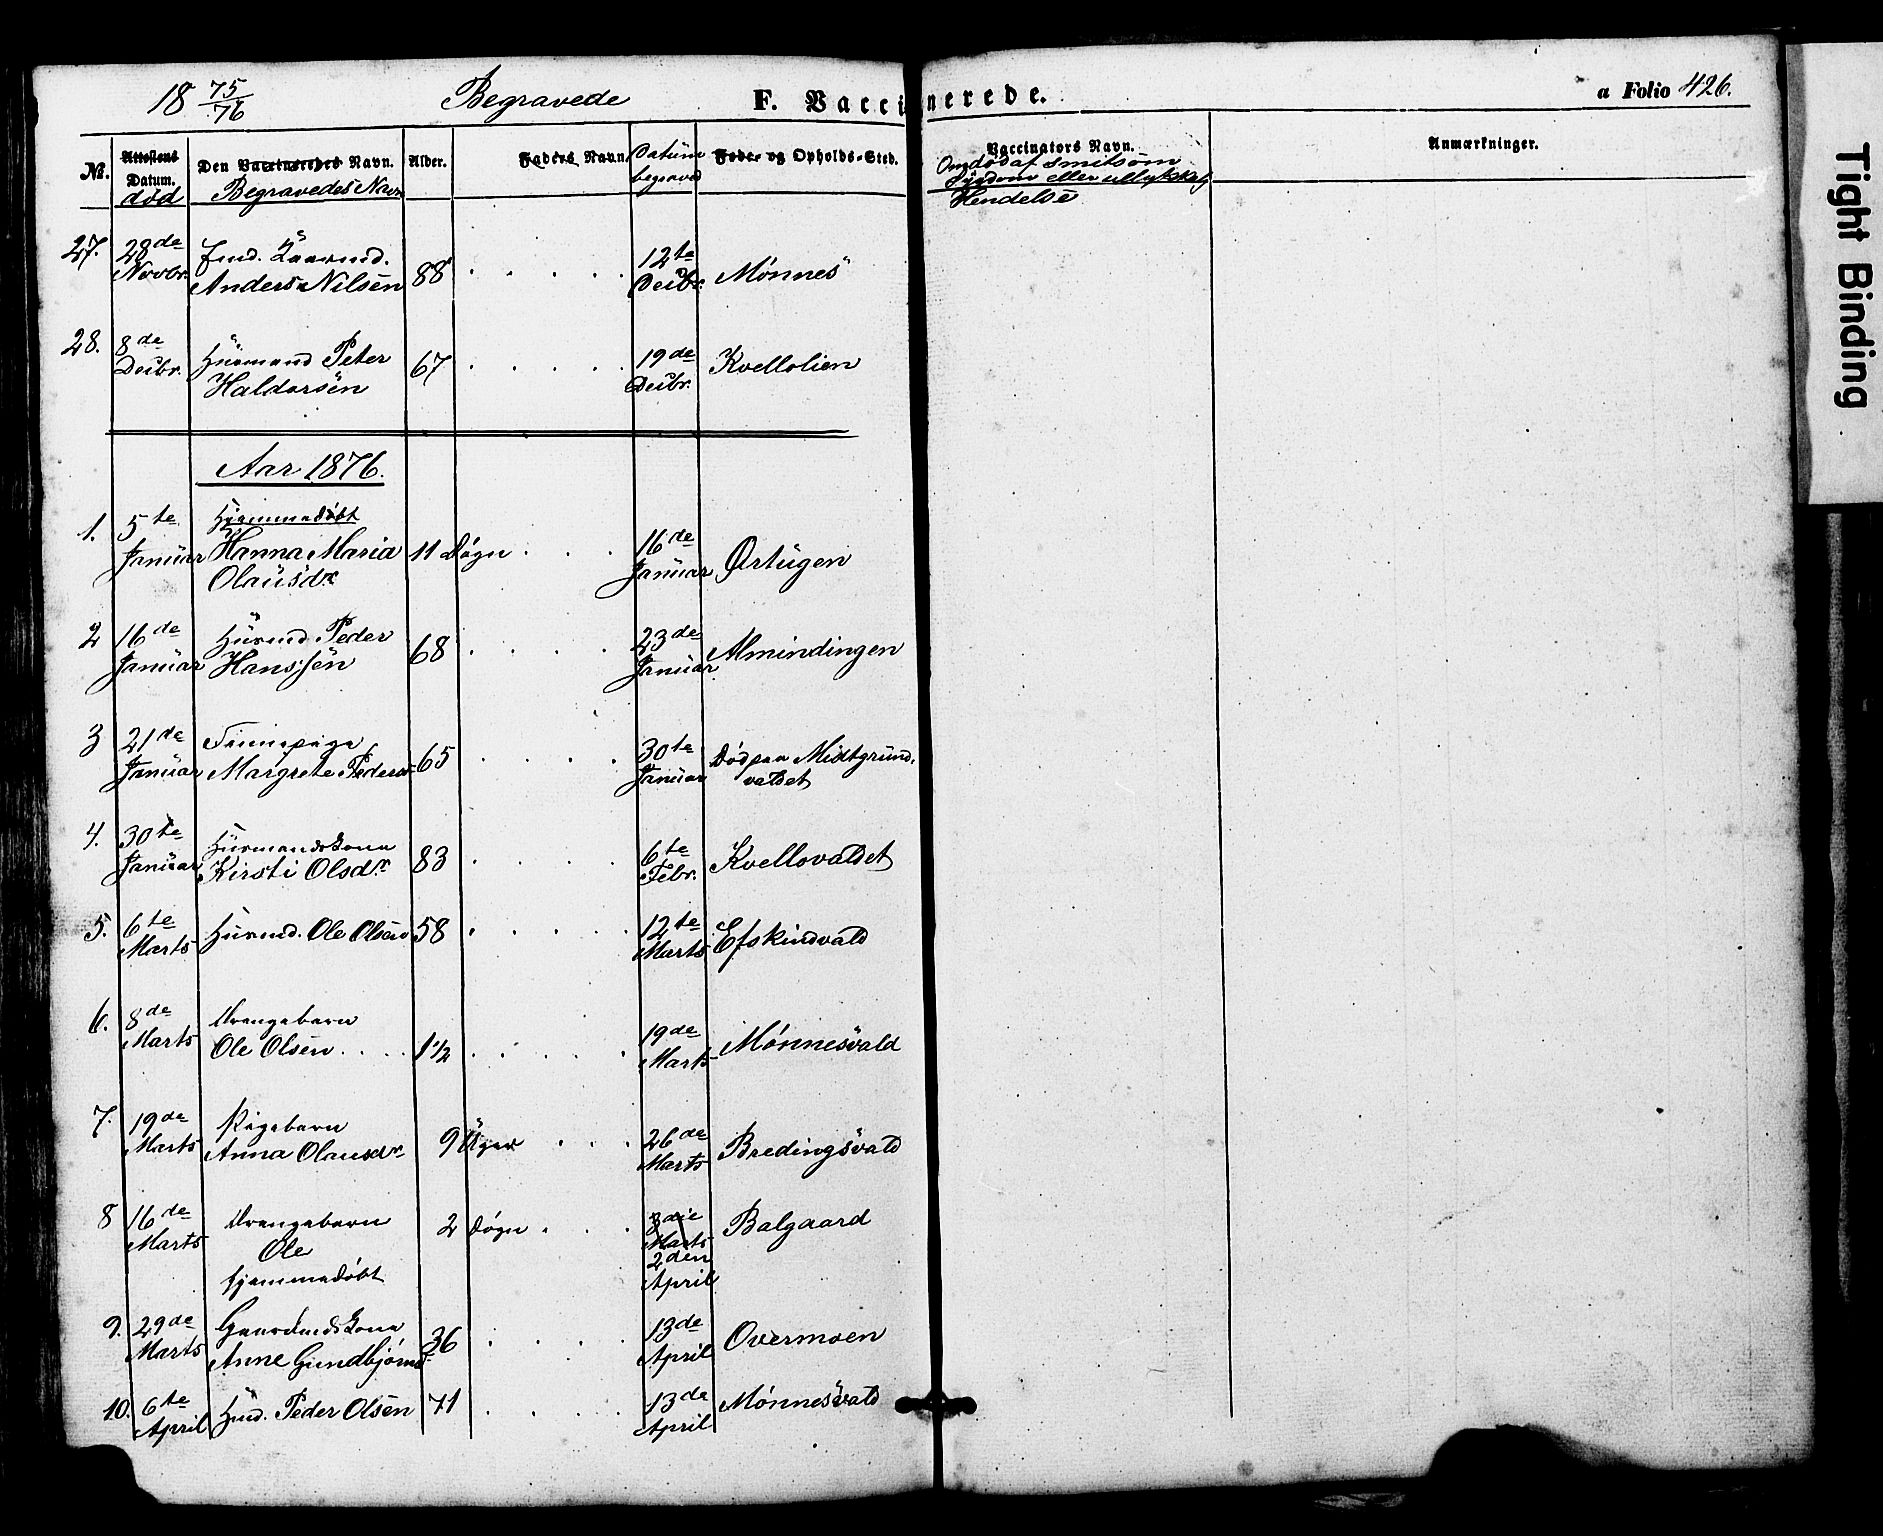 18 75/76 Begravede F. Vaccinerede. a Folio 426.
No. Attestens Datum. død
Den Vaccineredes Navn. Begravedes Navn
Alder.
Faders Navn.
Datum begraved
Føde- og Opholds-Sted.
Vaccinators Navn.
Om død af smitsom
Sygdom eller ullykkelig
Hendelse
Anmærkninger.
27. 28de Novbr. Anders Nilsen 88 12te Decbr. Mønnes
28. 8de Decbr. Huusmand Peter
Haldorsen 67 19de Decbr. Kvellolien
Aar 1876.
1. 5te Januar Hjemmedøbt
Hanna Maria
Olausdr. 11 Døgn 16de Januar Ørtugen
2 16de Januar Huusmd. Peder
Hanssen 68 23de Januar Almindingen
3 21de Januar Finnepige
Margrete Pedersd. 65 30te Januar Død paa Midtgrund-
valdet
4. 30te Januar Huusmandskone
Kirsti Olsdr. 83 6te Febr. Kvellovaldet
5. 6te Marts Huusmd. Ole Olsen 58 12te Marts Efskindvald
6. 8de Marts Drengebarn
Ole Olsen 1 1/2 19de Marts Mønnesvald
7. 19de Marts Pigebarn
Anna Olausdr. 9 Uger 26de Marts Bredingsvald
8 16de Marts Drengebarn
Ole
hjemmedøbt 2 Døgn 3die Marts
2den April Balgaard
9. 29de Marts Gaardmdskone
Anne Gundbjørnsd. 36 13de April Overmoen
10. 6te April Hmd. Peder Olsen 71 13de April Mønnesvald
Tight Binding